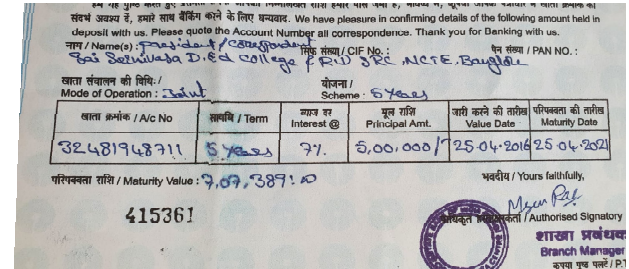 संदर्भ अवश्य दें, हमारे साथ बैंकिंग करने के लिए धन्यवाद. We have pleasure in confirming details of the following amount held in
deposit with us. Please quote the Account Number all correspondence. Thank you for Banking with us.
नाम / Name(s): President / Correspondent सिफ़ संख्या / CIF No. : पैन संख्या / PAN NO. :
Sai Srinivasa D.Ed College & R.D SRC, NCTE, Banglore
खाता संचालन की विधि: / योजना /
Mode of Operation : Joint Scheme : 5 Years
खाता क्रमांक / A/c No सावधि / Term ब्याज दर Interest @ मूल राशि Principal Amt. जारी करने की तारीख Value Date परिपक्वता की तारीख Maturity Date
32481948711 5 Years 7% 5,00,000/- 25.04.2016 25.04.2021
परिपक्वता राशि / Maturity Value : 7,07,389:00 भवदीय / Yours faithfully,
415361
हस्ताक्षरकर्ता / Authorised Signatory
शाखा प्रबंधक
Branch Manager
कृपया पृष्ठ पलटें / P.T